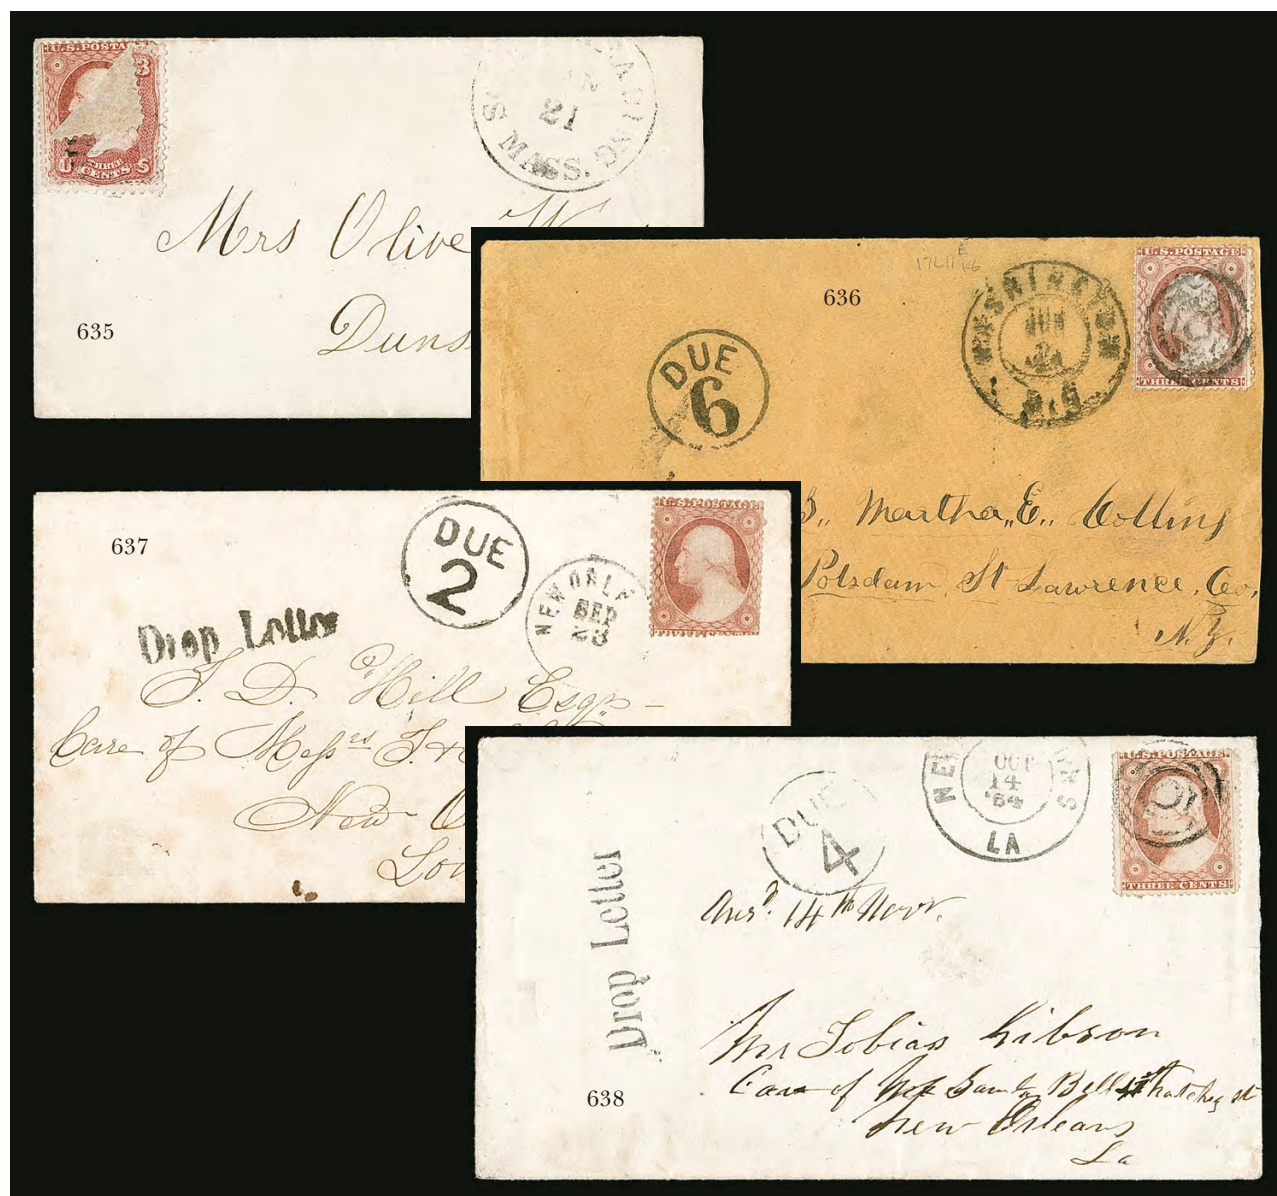 U.S. POSTA
3
U S
THREE
CENTS
ADING
21
S MASS.
Mrs Olive W
Duns
635
636
DUE
6
U.S. POSTAGE
THREE CENTS
Martha, E., Collins
Potsdam, St Lawrence, Co,
N.Y.
637
DUE
2
NEW ORLE
SEP
23
U.S. POSTAGE
Drop Letter
T. D. Hill Esqr
Care of Messrs T. &
New O
Lou
DUE
4
NEW
NS
OCT
14
'64
LA
U.S. POSTAGE
THREE CENTS
Drop Letter
Ansd. 14th Novr.
Mr Tobias Gibson
Care of
New Orleans
La
638